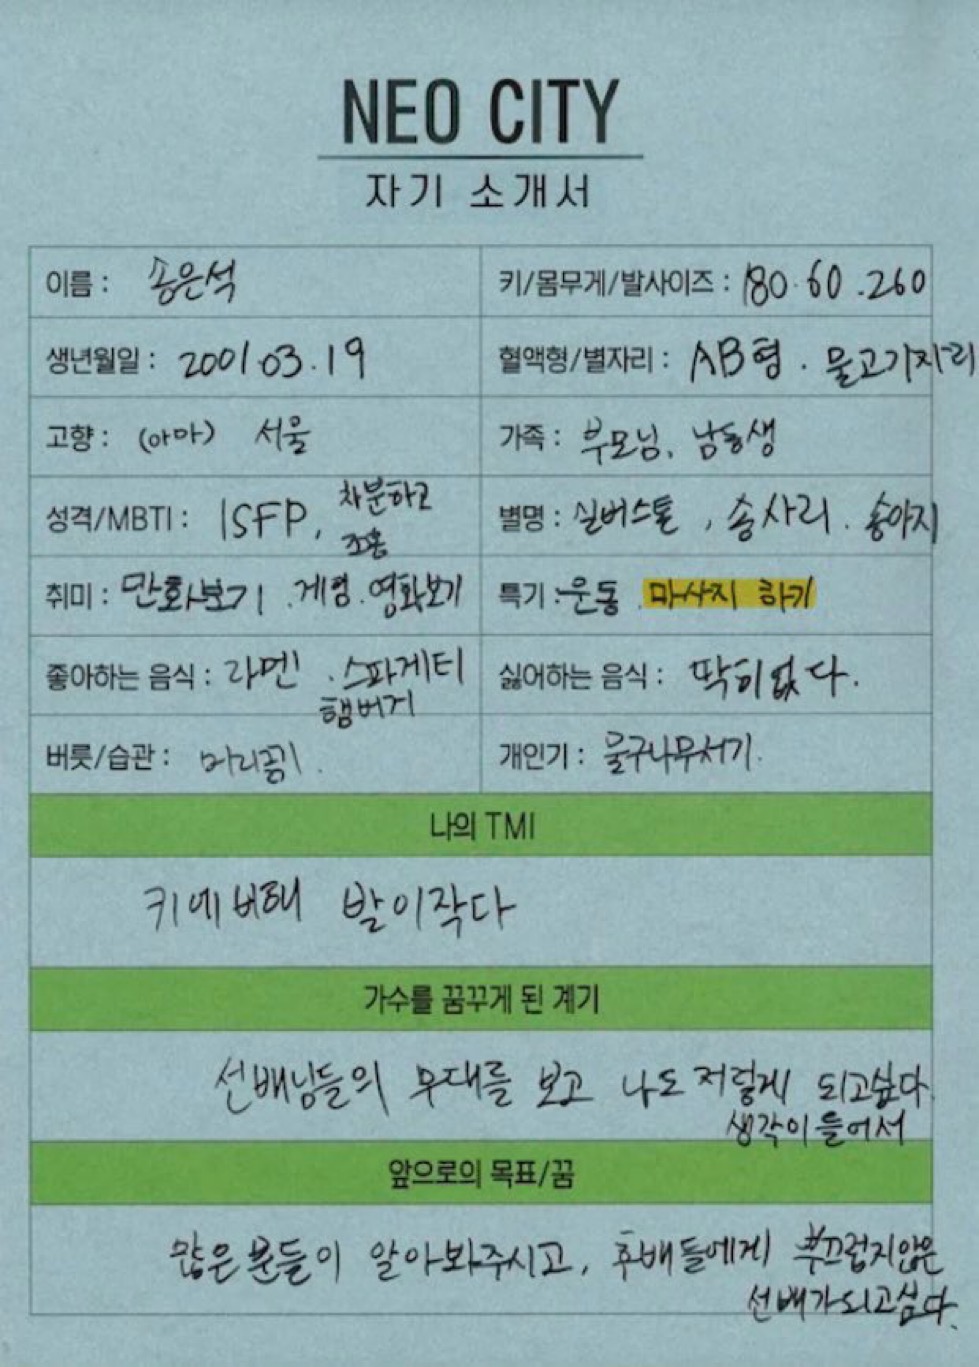 NEO CITY
자기 소개서
이름 : 송은석
키/몸무게/발사이즈 : 180 · 60 . 260
생년월일 : 2001.03.19
혈액형/별자리 : AB형 . 물고기자리
고향 : (아마) 서울
가족 : 부모님, 남동생
성격/MBTI : ISFP, 차분하고
조용
별명 : 실버스톤 , 송사리 . 송아지
취미 : 만화보기 . 게임 . 영화보기
특기 : 운동 . 마사지 하기
좋아하는 음식 : 라멘 . 스파게티
햄버거
싫어하는 음식 : 딱히없다.
버릇/습관 : 머리꼬기 .
개인기 : 물구나무서기 .
나의 TMI
키에 비해 발이작다
가수를 꿈꾸게 된 계기
선배님들의 무대를 보고 나도 저렇게 되고싶다
생각이 들어서
앞으로의 목표/꿈
많은 분들이 알아봐주시고, 후배들에게 부끄럽지않은
선배가되고싶다.